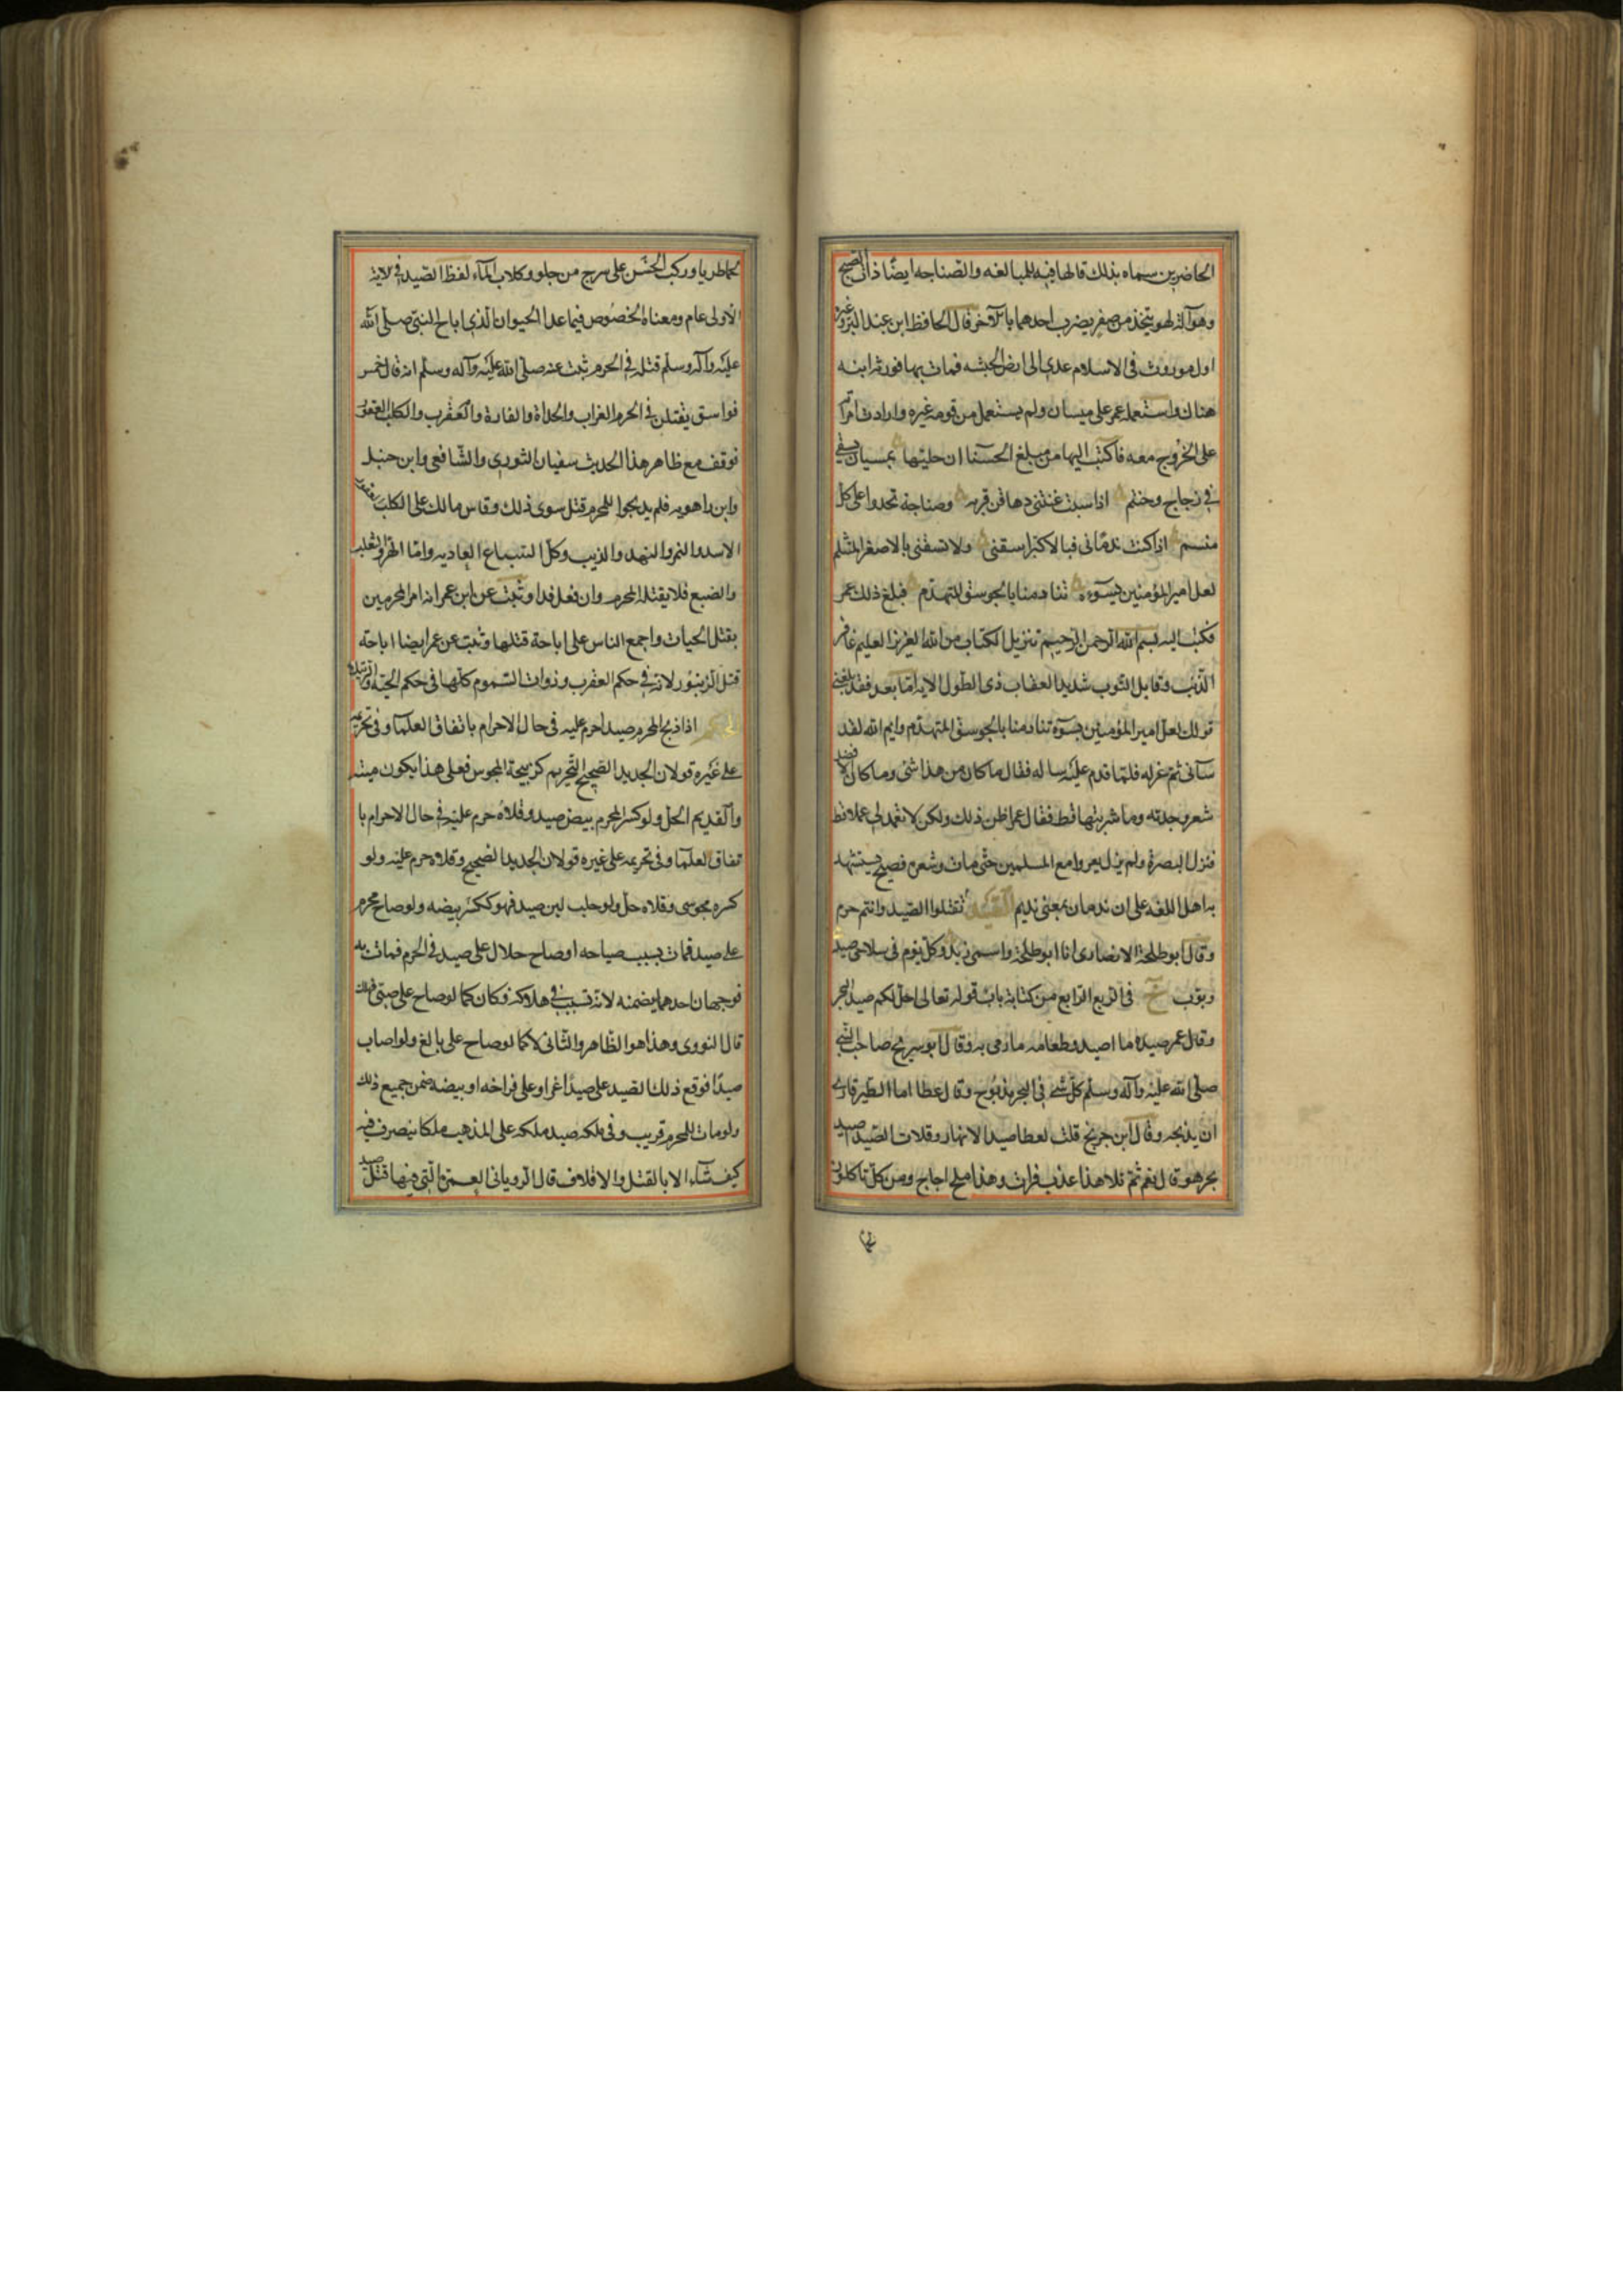 الحاضرين سماه بذلك قالها فيه للمبالغه والصناجه ايضا ذات الصنج
وهو آلة لهو يتخذ من صفر يضرب احدهما بالآخر قال الحافظ ابن عبد البر وغيره
اول موروث فى الاسلام عدى الى ارض الحبشه فمات بها فورثه ابنه
هناك واستعمله عمر على ميسان ولم يستعمل من قومه غيره وارادت امراته
على الخروج معه فاكتب اليها من مبلغ الحسنا ان حليلها بميسان يسقى
فى زجاج وحنتم اذا سيت غنتنى دهاقن قريه وصناجة تحدوا على كل
منسم اذا كنت ندمانى فبالاكبر اسقنى ولا تسقنى بالاصغر المتثلم
لعل امير المؤمنين يسوءه تنادمنا بالجوسق المتهدم فبلغ ذلك عمر
فكتب اليه بسم الله الرحمن الرحيم تنزيل الكتاب من الله العزيز العليم غافر
الذنب وقابل التوب شديد العقاب ذى الطول الايه اما بعد فقد بلغنى
قولك لعل امير المؤمنين يسوءه تنادمنا بالجوسق المتهدم وايم الله لقد
سآنى ثم عزله فلما قدم عليه ساله فقال ما كان من هذا شى وما كان الا فضل
شعر وجدته وما شربتها قط فقال عمر اظن ذلك ولكن لا تعمد لى عملا قط
فنزل البصرة ولم يزل يغزوا مع المسلمين حتى مات وشعره فصيح يستشهد
به اهل اللغه على ان ندمان بمعنى نديم الصيد لا تقتلوا الصيد وانتم حرم
وقال ابو طلحة الانصارى انا ابو طلحة واسمى زيد وكل يوم فى سلاحى صيد
وبوب خ فى الربع الرابع من كتابة باب قوله تعالى احل لكم صيد البحر
وقال عمر صيده ما اصيد وطعامه ما رمى به وقال ابو سريح صاحب النبى
صلى الله عليه وآله وسلم كل شئ فى البحر مذبوح وقال عطا اما الطير فارى
ان يذبحه وقال ابن جريج قلت لعطا صيد الانهار وقلات الصيد اصيد
بحر هو قال نعم ثم تلا هذا عذب فرات وهذا ملح اجاج ومن كل تاكلون
لحما طريا وركب الحسن على سرج من جلود كلاب المآء لفظ الصيد فى الاية
الاولى عام ومعناه الخصوص فيما عدا الحيوان الذى اباح النبى صلى الله
عليه وآله وسلم قتله فى الحرم ثبت عنه صلى الله عليه وآله وسلم انه قال خمس
فواسق يقتلن فى الحرم الغراب والحدأة والفارة والعقرب والكلب العقور
فوقف مع ظاهر هذا الحديث سفيان الثورى والشافعى وابن حنبل
وابن راهويه فلم يبيحوا للمحرم قتل سوى ذلك وقاس مالك على الكلب العقور
الاسد والنمر والفهد والذيب وكل السباع العاديه واما الهر والثعلب
والضبع فلا يقتله المحرم وان فعل فدا وثبت عن ابن عمر انه امر المحرمين
بقتل الحيات واجمع الناس على اباحة قتلها وثبت عن عمر ايضا اباحة
قتل الزنبور لانه فى حكم العقرب وذوات السموم كلها فى حكم الحية
الحكم اذا ذبح المحرم صيدا حرم عليه فى حال الاحرام باتفاق العلمآ وفى تحريمه
على غيره قولان الجديد الصحيح التحريم كذبيحة المجوس فعلى هذا يكون ميتة
والقديم الحل ولو كسر المحرم بيض صيد وقلاه حرم عليه فى حال الاحرام با
تفاق العلمآ وفى تحريمه على غيره قولان الجديد الصحيح وقلاه حرم عليه ولو
كسره مجوسى وقلاه حل ولو حلب لبن صيد فهو ككسر بيضه ولو صاح محرم
على صيد فمات بسبب صياحه او صاح حلال على صيد فى الحرم فمات به
فوجهان احدهما يضمنه لانه تسبب فى هلاكه وكان كما لو صاح على صبى فهلك
قال النووى وهذا هو الظاهر والثانى لا كما لو صاح على بالغ ولو اصاب
صيدا فوقع ذلك الصيد على صيد اخر او على فراخه او بيضه ضمن جميع ذلك
ولو مات للمحرم قريب وفى ملكه صيد ملكه على المذهب ملكا يتصرف فيه
كيف شآء الا بالقتل والاتلاف قال الرويانى العمرة التى فيها قتل صيد